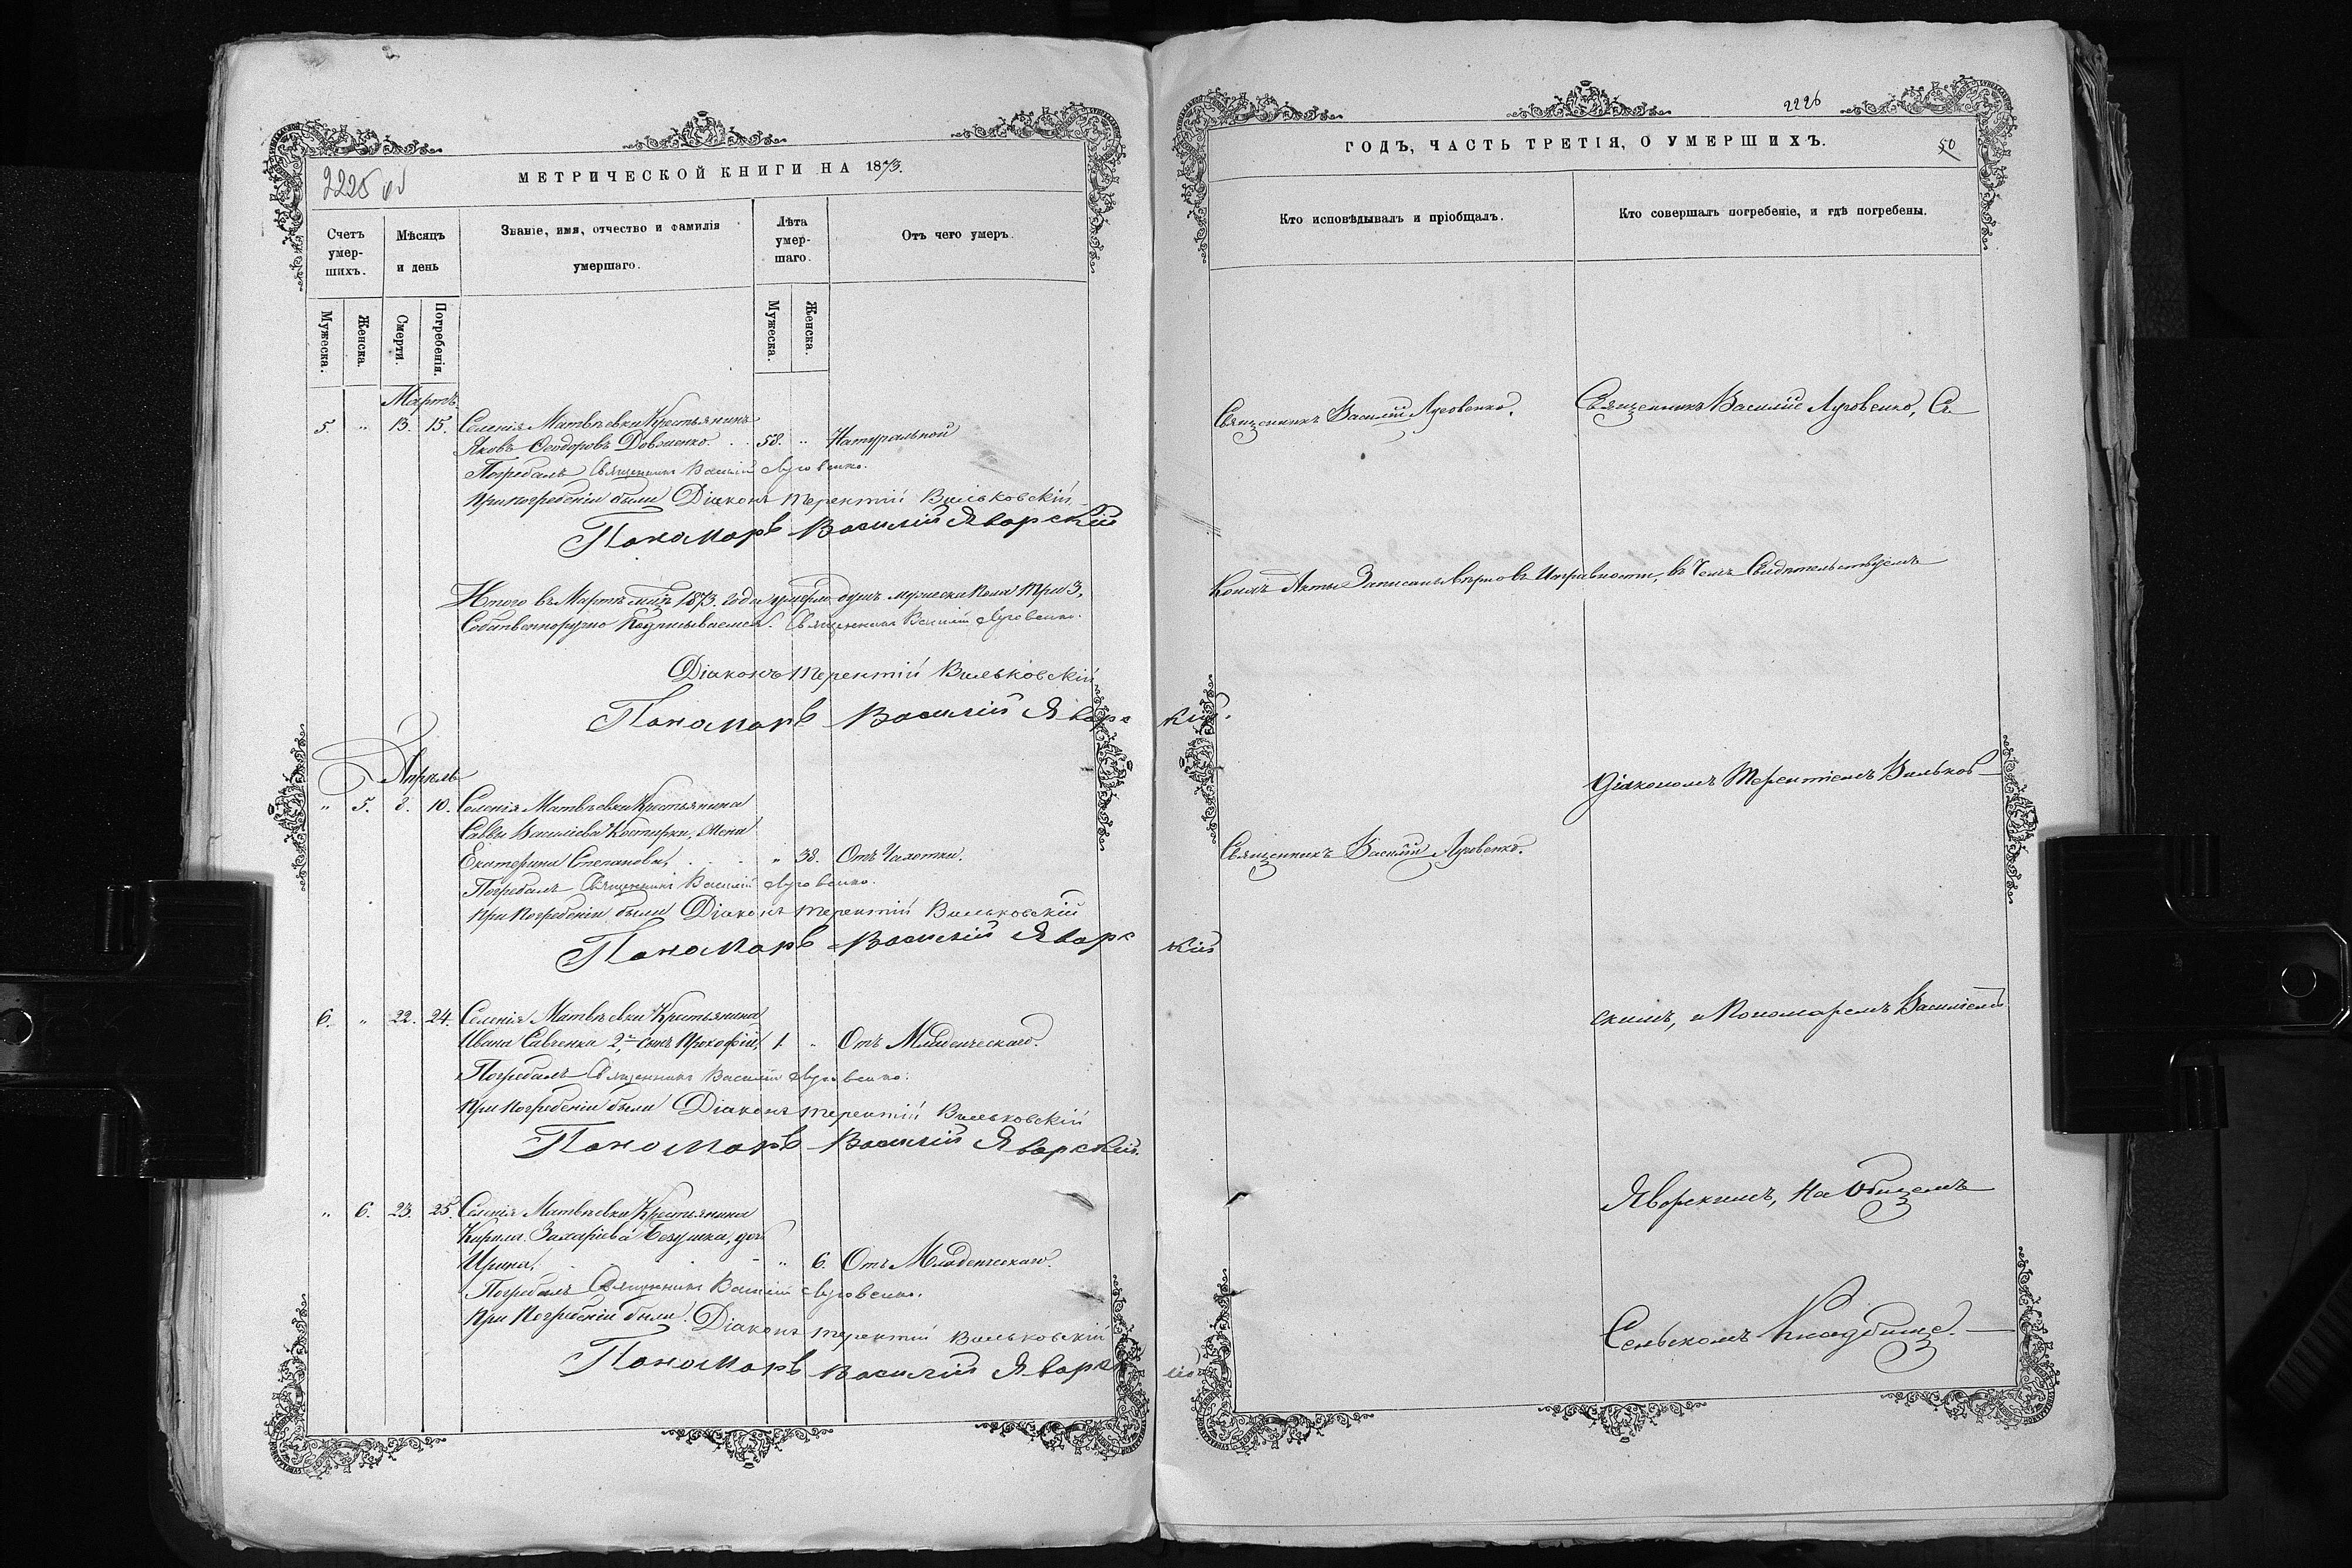 2225 об
МЕТРИЧЕСКОЙ КНИГИ НА 1873.
Счетъ умер-шихъ.
Мѣсяцъ и день
Званіе, имя, отчество и фамилія умершаго.
Лѣта умер-шаго.
Отъ чего умеръ.
Мужеска.
Женска.
Смерти.
Погребенія.
Мужеска.
Женска.
Мартъ.
5. " 13. 15. Селенія Матвѣевки Крестьянинъ
Яковъ Ѳеодоровъ Довженко. . . 58. " Натуральной
Погребалъ Священникъ Василій Луговенко.
При погребеніи были Діаконъ Терентій Вильковскій
Пономарь Василій Яворскій
Итого въ Мартѣ м-цѣ 1873. года умерло душъ мужеска пола три 3,
Собственноручно подписываемся. Священникъ Василій Луговенко.
Діаконъ Терентій Вильковскій
Пономарь Василій Яворскій.
Апрѣль
" 5. 8. 10. Селенія Матвѣевки Крестьянина
Саввы Василіева Костирки, жена
Екатерина Степановна, . . . " 38. Отъ Чахотки.
Погребалъ Священникъ Василій Луговенко.
При погребеніи были Діаконъ Терентій Вильковскій
Пономарь Василій Яворскій
6. " 22. 24. Селенія Матвѣевки Крестьянина
Ивана Савченка 2, сынъ Прокофій, 1. " Отъ Младенческаго.
Погребалъ Священникъ Василій Луговенко.
При погребеніи были Діаконъ Терентій Вильковскій
Пономарь Василій Яворскій.
" 6. 23. 25. Селенія Матвѣевки Крестьянина
Кирила Захаріева дочь
Ирина, " 6. Отъ Младенческаго.
Погребалъ Священникъ Василій Луговенко.
При погребеніи были. Діаконъ Терентій Вильковскій
Пономарь Василій Яворскій
2226
ГОДЪ, ЧАСТЬ ТРЕТІЯ, О УМЕРШИХЪ.
50
Кто исповѣдывалъ и пріобщалъ.
Кто совершалъ погребеніе, и гдѣ погребены.
Священникъ Василій Луговенко.
Священникъ Василій Луговенко, Съ
Коихъ Акты Записаны вѣрно въ Исправности, въ чемъ Свидѣтельствуемъ
Діакономъ Терентіемъ Вильков-
Священникъ Василій Луговенко.
скимъ, и Пономаремъ Василіемъ
Яворскимъ, На Общемъ
Сельскомъ Кладбищѣ.